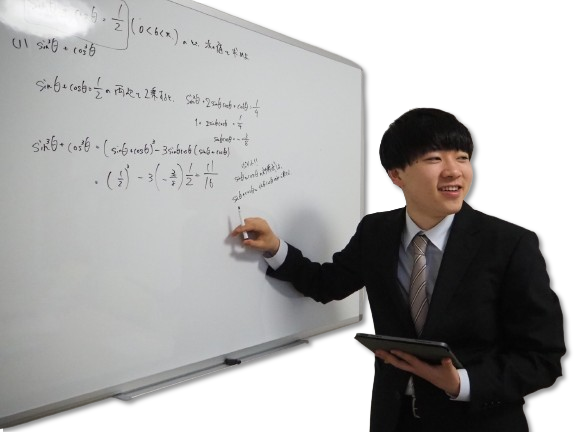 sinθ + cosθ = 1/2 (0 < θ < π) のとき、次の値を求めよ
(1) sin³θ + cos³θ
sinθ + cosθ = 1/2 の両辺を2乗すると、
sin²θ + 2sinθcosθ + cos²θ = 1/4
1 + 2sinθcosθ = 1/4
sinθcosθ = -3/8
sin³θ + cos³θ = (sinθ + cosθ)³ - 3sinθcosθ (sinθ + cosθ)
= (1/2)³ - 3(-3/8) 1/2 = 11/16